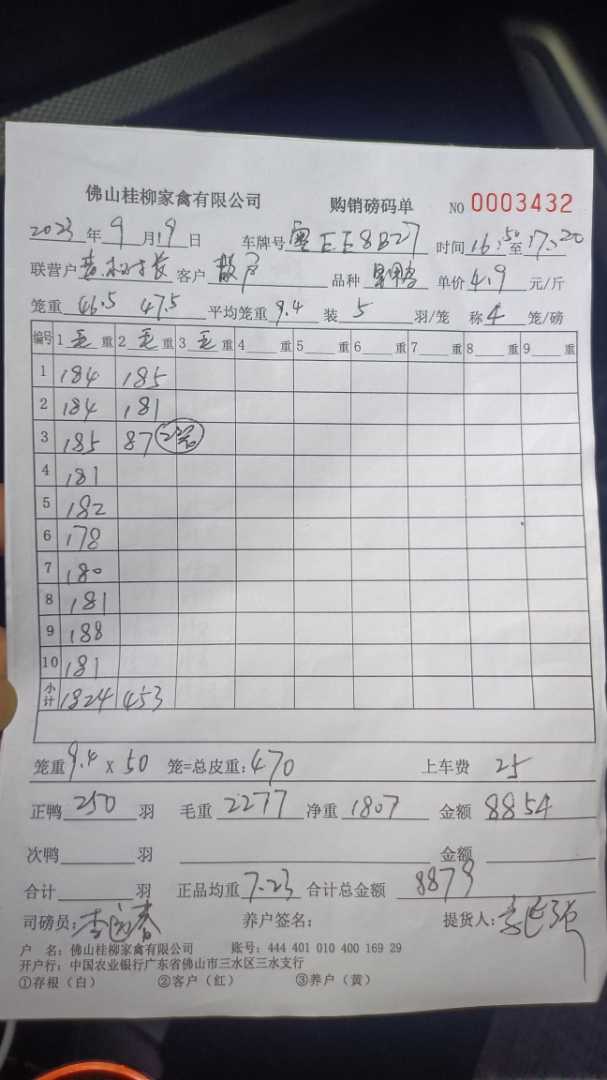 佛山桂柳家禽有限公司 购销磅码单 NO 0003432
2023年9月19日 车牌号粤EE8B27 时间16:50至17:20
联营户 客户散户 品种 单价4.9元/斤
笼重46.5 47.5 平均笼重9.4 装5羽/笼 称4笼/磅
编号 1毛重 2毛重 3毛重 4重 5重 6重 7重 8重 9重
1 184 185
2 184 181
3 185 87
4 181
5 182
6 178
7 180
8 181
9 188
10 181
小计 1824 453
笼重9.4×50笼=总皮重:470 上车费25
正鸭250羽 毛重2277 净重1807 金额8854
次鸭羽 金额
合计羽 正品均重7.23 合计总金额8879
司磅员: 养户签名: 提货人:
户 名:佛山桂柳家禽有限公司 账号:444 401 010 400 169 29
开户行:中国农业银行广东省佛山市三水区三水支行
①存根(白) ②客户(红) ③养户(黄)